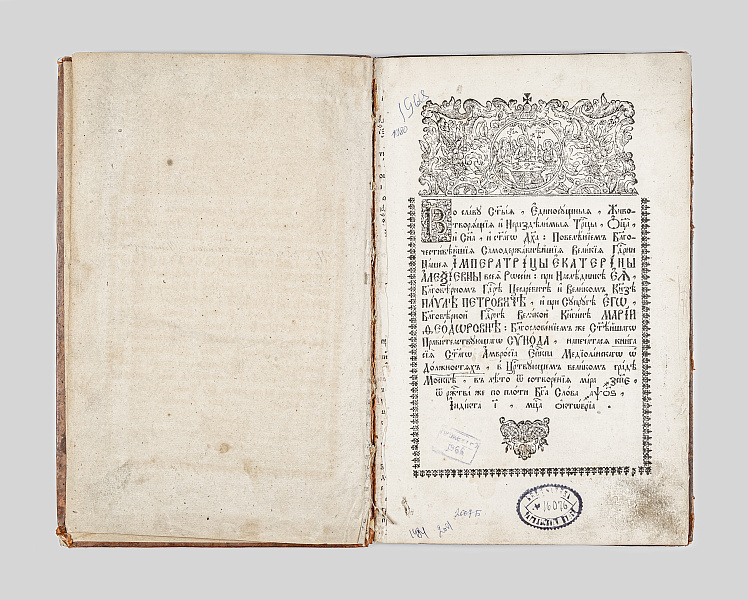 1968
1980
Во славу Ст҃ыѧ, Єдиносꙋщныѧ, Живо-
творѧщїѧ и Нераздѣлимыѧ Трⷪ҇цы, Ѻ҆ц҃а̀,
и Сн҃а, и ст҃агѡ Дх҃а: Повелѣнїемъ Благо-
честивѣйшїѧ Самодержавнѣйшїѧ Великїѧ Гдⷭ҇рни
Нашеѧ ІМПЕРАТРІЦЫ ЄКАТЕРІНЫ
АЛЕѮІЕВНЫ всеѧ Рѡссїи: при Наслѣдникѣ ЄѦ̀,
Благовѣрномъ Гдⷭ҇рѣ Цесаревичѣ и Великомъ Кнѧ҃зѣ
ПАѴЛѢ ПЕТРОВИЧѢ, и при Сꙋпрꙋгѣ ЄГѠ̀,
Благовѣрной Гдⷭ҇рнѣ Великой Кнѧгинѣ МАРІИ
ѲЕОДѠРОВНѢ: Благословенїемъ же Ст҃ѣйшагѡ
Правительствꙋющагѡ СѴНОДА, напечатасѧ книга
сїѧ Ст҃агѡ Амвросїа Єпⷭ҇кпа Медїоланскагѡ ѡ
Должностѧхъ, в Црⷭ҇твꙋющемъ великомъ градѣ
Москвѣ, въ лѣто ѿ сотворенїѧ мїра
ѿ ржⷭ҇тва же по плоти Бг҃а Слова
Індїкта і҃, мцⷭ҇а октѡврїа
1968
1984
2007 Б
16076